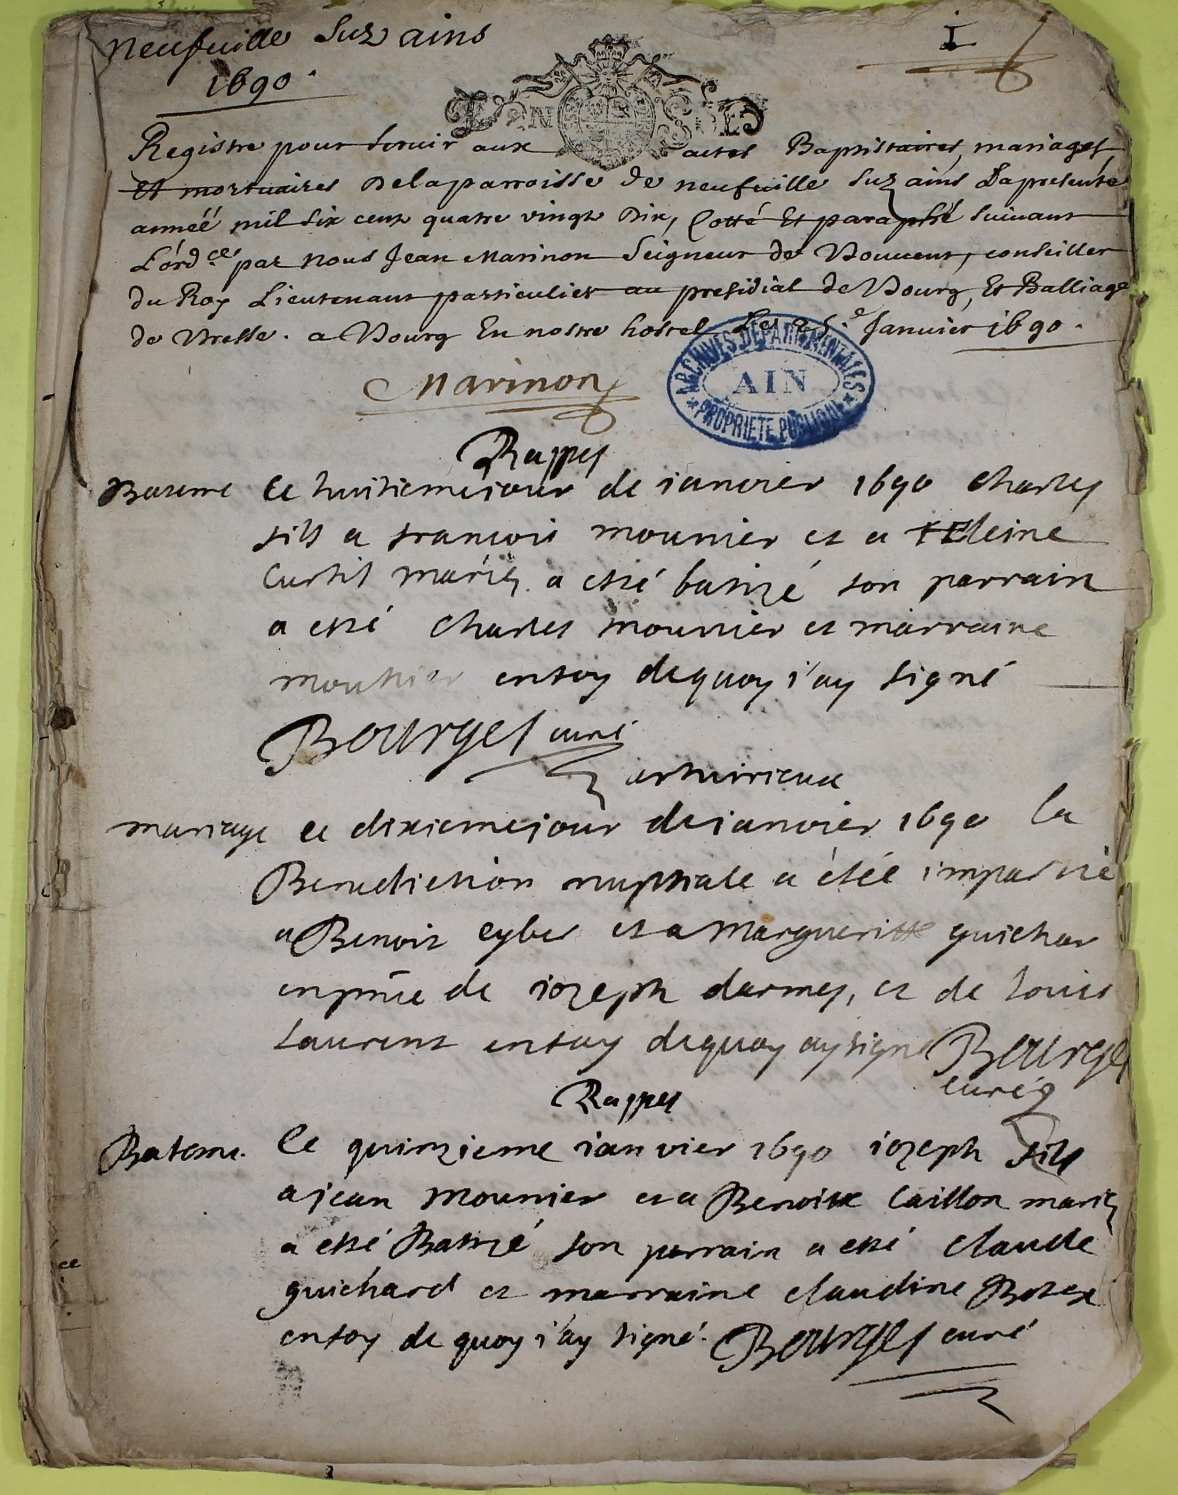 neufuille Suz ains
1690.
I
Registre pour seruir aux actes Baptistaires, mariages,
Et mortuaires De la parroisse de neufuille suz ains La presente
anneé mil six cent quatre vingt Dix, Cotté Et paraphé suiuant
L'ord.ce par nous Jean Marinon Seigneur de conseiller
du Roy Lieutenant particulier au presidial de Bourg, Et Balliage
de Bresse. a Bourg En nostre hostel Le 25.e Januier 1690.
Marinon
ARCHIVES DEPARTEMENTALES
AIN
PROPRIETE PUBLIQUE
Rappes
Bateme Ce huitieme jour de ianvier 1690 Charles
fils a francois mounier et a heleine
Curtil mariez a esté batizé son parrain
a esté Charles mounier et marraine
en foy de quoy i'ay signé
Bourges curé
mariage Ce dixieme jour de ianvier 1690 la
Benediction nuptiale a étée impartie
a Benoit cyber et a Margueritte guichar
en pnce de iozeph darmes, et de louis
Laurent en foy de quoy ay signé Bourges
curé
Rappes
Bateme. Ce quinzieme ianvier 1690 iozeph fils
a jean Mounier et a Benoite Caillon mariez
a esté Batizé son parrain a esté claude
guichard et marraine claudine
en foy de quoy i'ay signé. Bourges curé